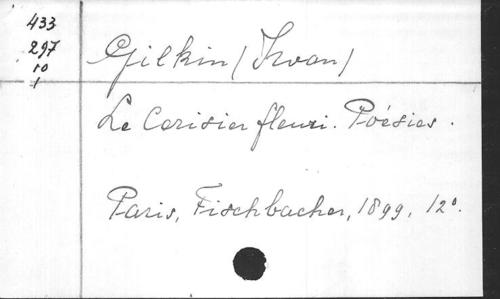 433
297
10
1
Gilkin (Iwan)
Le Cerisier fleuri. Poésies.
Paris, Fischbacher, 1899, 12°.